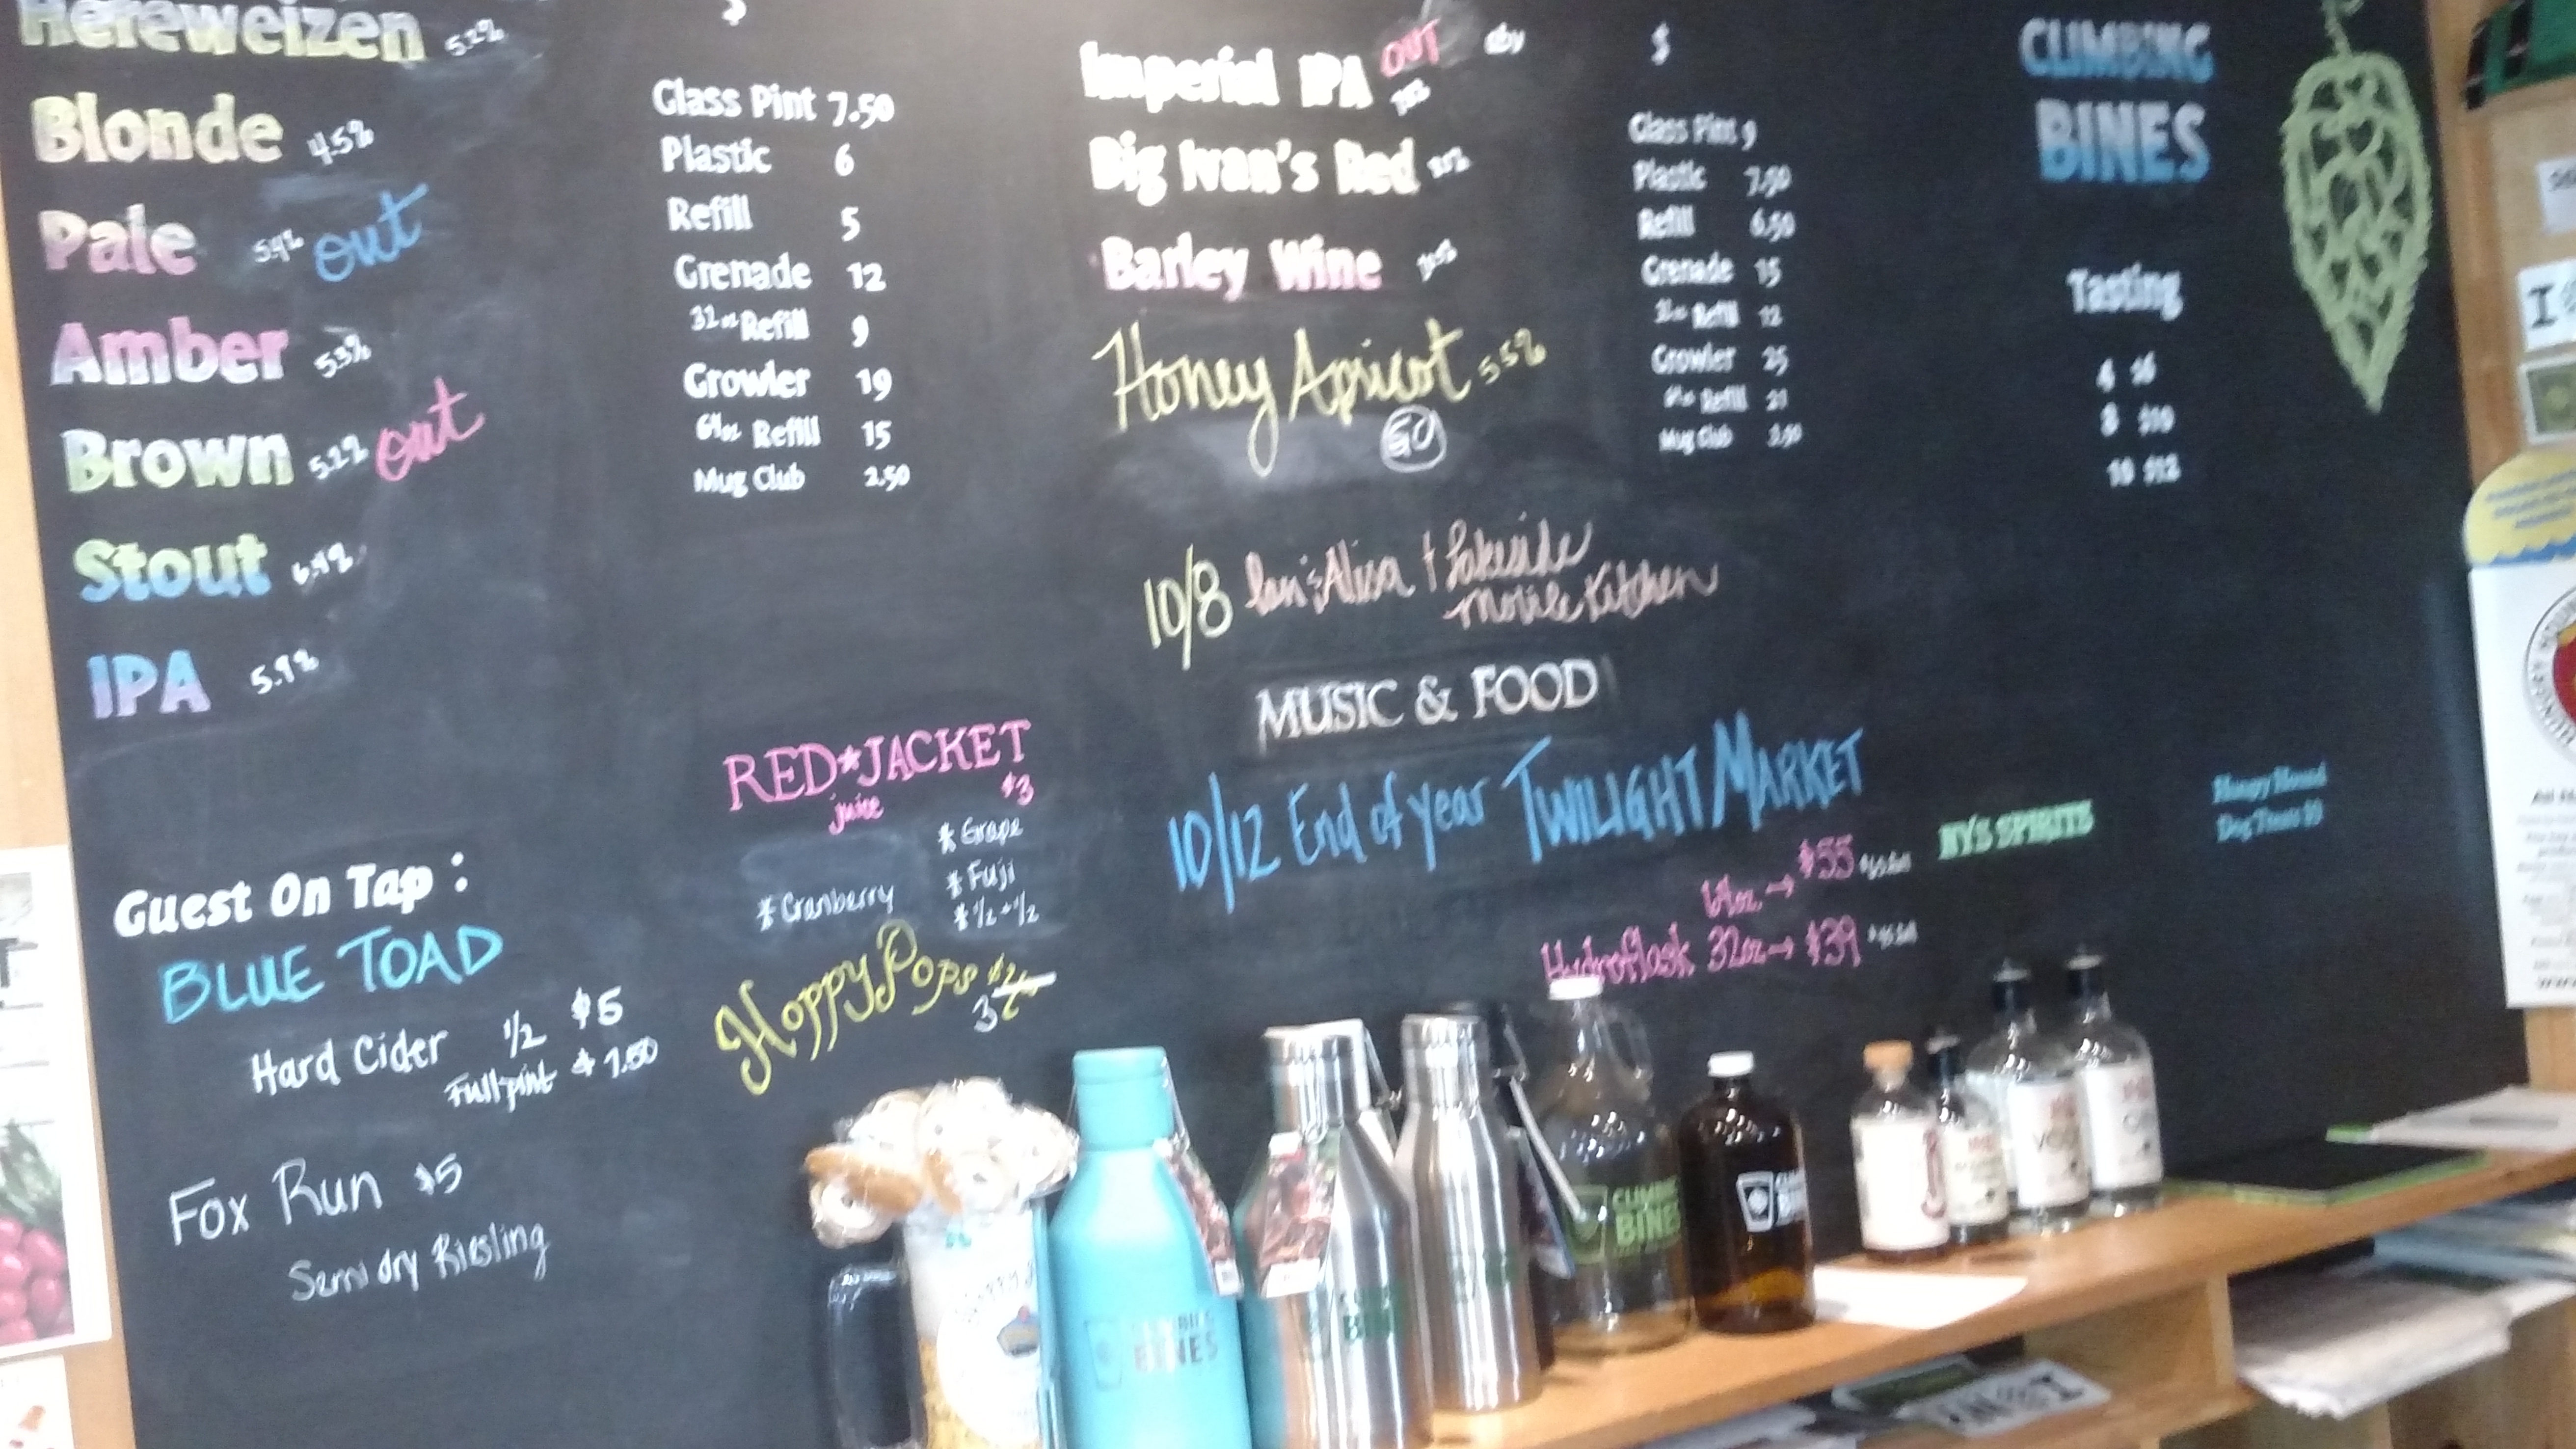 Hefeweizen 5.2%
Blonde 4.5%
Pale 5.4% out
Amber 5.3%
Brown 5.2% out
Stout
IPA 5.9%
$
Glass Pint 7.50
Plastic 6
Refill 5
Grenade 12
32oz Refill 9
Growler 19
64oz Refill 15
Mug Club 2.50
Imperial IPA OUT
Big Ivan's Red
Barley Wine
Honey Apricot 5.5%
GO
$
Glass Pint 9
Plastic 7.50
Refill 6.50
Grenade 15
32oz Refill 12
Growler 25
64oz Refill 21
Mug Club 3.50
CLIMBING
BINES
Tasting
4 $6
8 $10
10 $12
10/8 Alisa + Lakeside
Mobile Kitchen
MUSIC & FOOD
10/12 End of year TWILIGHT MARKET
64oz. → $55
Hydroflask 32oz → $39
NYS SPIRITS
Dog Treats
RED*JACKET
juice $3
* Grape
* Fuji
* Cranberry
* 1/2 + 1/2
HoppyPops
3
Guest On Tap:
BLUE TOAD
Hard Cider 1/2 $5
Full pint $7.50
Fox Run $5
Semi dry Riesling
BINES
CLIMBING
BINES
BINES
I